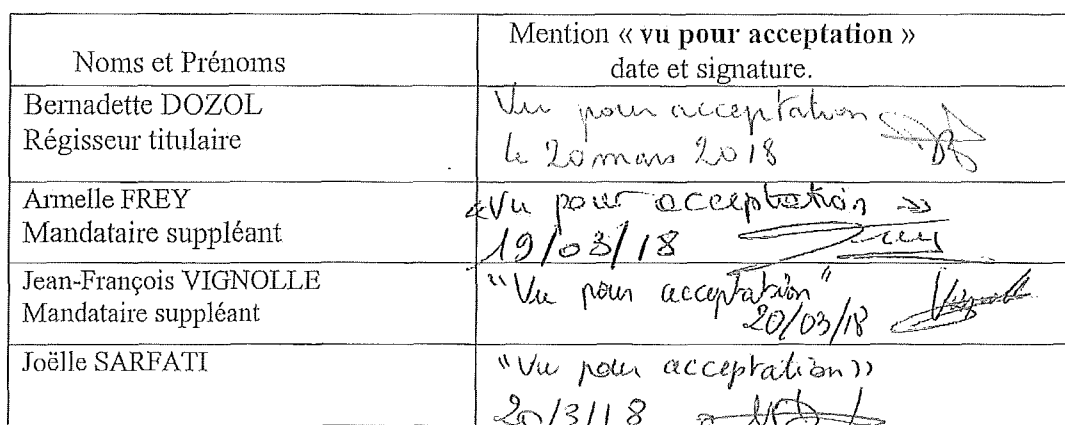 Noms et Prénoms
Mention « vu pour acceptation »
date et signature.
Bernadette DOZOL
Régisseur titulaire
Vu pour acceptation
le 20 mars 2018
Armelle FREY
Mandataire suppléant
«Vu pour acceptation »
19/03/18
Jean-François VIGNOLLE
Mandataire suppléant
"Vu pour acceptation"
20/03/18
Joëlle SARFATI
"Vu pour acceptation»
20/3/18